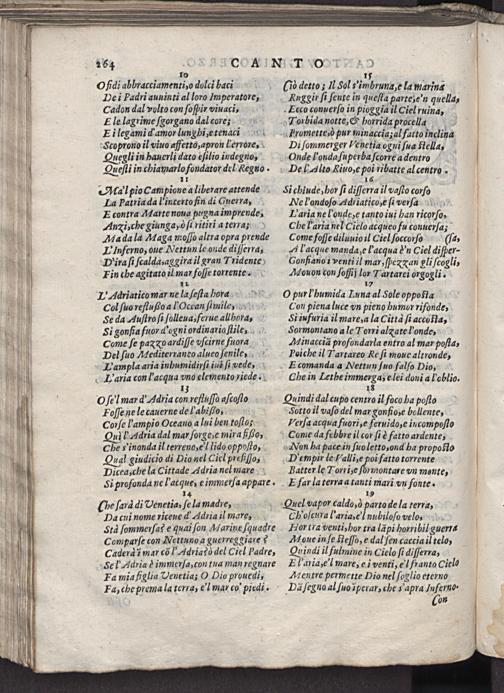 264 CANTO
10
O fidi abbracciamenti, o dolci baci
De i Padri auuinti al loro Imperatore,
Cadon dal volto con sospir viuaci,
E le lagrime sgorgano dal core;
E i legami d'amor lunghi, e tenaci
Scoprono il viuo affetto, apron l'errore,
Quegli in hauerli dato esilio indegno,
Questi in chiamarlo fondator del Regno.
11
Ma'l pio Campione a liberare attende
La Patria da l'interto fin di Guerra,
E contra Marte noua pugna imprende,
Anzi, che giunga, ò si ritiri a terra;
Ma da la Maga mosso altra opra prende
L'Inferno, oue Nettun le onde disserra,
D'ira si scalda, aggira il gran Tridente
Fin che agitato il mar fosse torrente.
12
L'Adriatico mar ne la sesta hora
Col suo reflusso a l'Ocean simile,
Se da Austro si solleua, ferue allhora,
Si gonfia fuor d'ogni ordinario stile,
Come se pazzo ardisse vscirne fuora
Del suo Mediterranto alueo senile,
L'ampla aria inhumidirsi iui si vede,
L'aria con l'acqua vno elemento riede.
13
O se'l mar d'Adria con reflusso ascosto
Fosse ne le cauerne de l'abisso,
Corse l'ampio Oceano a lui ben tosto;
Quì l'Adria dal mar sorge, e mira fisso,
Che s'inonda il terreno, e'l lido opposto,
Qual giudicio di Dio nel Ciel prefisso,
Dicea, che la Cittade Adria nel mare
Si profonda ne l'acque, e immersa appare.
14
Che sarà di Venetia, se la madre,
Da cui nome riceue d'Adria il mare,
Stà sommersa? e quai son Marine squadre
Comparse con Nettuno a guerreggiare?
Caderà i mar cõ l'Adria? ò del Ciel Padre,
Se l'Adria è immersa, con tua man regnare
Fa mia figlia Venetia; O Dio prouedi,
Fa, che prema la terra, e'l mar co' piedi.
15
Ciò detto; Il Sol s'imbruna, e la marina
Ruggir si sente in questa parte, e'n quella,
Ecco conuerso in pioggia il Ciel ruina,
Torbida notte, & horrida procella
Promette, ò pur minaccia; al fatto inclina
Di sommerger Venetia ogni sua stella,
Onde l'onda superba scorre a dentro
De l'Alto Riuo, e poi ribatte al centro.
16
Si chiude, hor si disserra il vasto corso
Ne l'ondoso Adriatico, e si versa
L'aria ne l'onde, e tanto iui han ricorso,
Che l'aria nel Cielo acqueo fu conuersa;
Come fosse diluuio il Ciel soccorso (sa,
A l'acque manda, e l'acqua è'n Ciel disper-
Gonfiano i venti il mar, spezzan gli scogli,
Mouon con soffi; lor Tartarei orgogli.
17
O pur l'humida Luna al Sole opposta
Con piena luce vn pieno humor rifonde,
Si infuria il mare, a la Città si accosta,
Sormontano a le Torri alzate l'onde,
Minaccia profondarla entro al mar posta,
Poiche il Tartareo Re si moue altronde,
E comanda a Nettun suo falso Dio,
Che in Lethe immerga, e lei doni a l'oblio.
18
Quindi dal cupo centro il foco ha posto
Sotto il vaso del mar gonfio, e bollente,
Versa acqua fuori, e feruido, e incomposto
Come da febbre il cor si è fatto ardente,
Non ha pace in suo letto, ond ha proposto
D'empir le Valli, e poi fatto torrente
Batter le Torri, e sormontare vn monte,
E far la terra a tanti mari vn fonte.
19
Quel vapor caldo, ò parto de la terra,
Ch'oscura l'aria, e'l nubiloso velo,
Hor tra venti, hor tra lāpi horribil guerra
Moue in se stesso, e dal sen caccia il telo,
Quindi il fulmine in Cielo si disserra,
E l'aria, e'l mare, e i venti, e'l franto Cielo
Mentre permette Dio nel soglio eterno
Dà segno al suo īperar, che s'apra Inferno.
Con